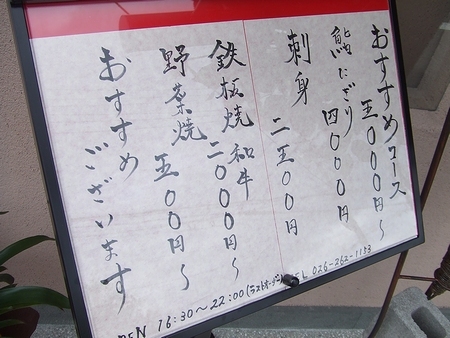 おすすめコース
五〇〇〇円～
鮨にぎり
四〇〇〇円
刺身
二五〇〇円
鉄板焼和牛
二〇〇〇円～
野菜焼
五〇〇円～
おすすめ
ございます
OPEN 16:30～22:00(ラストオーダー)
TEL 026-262-1153